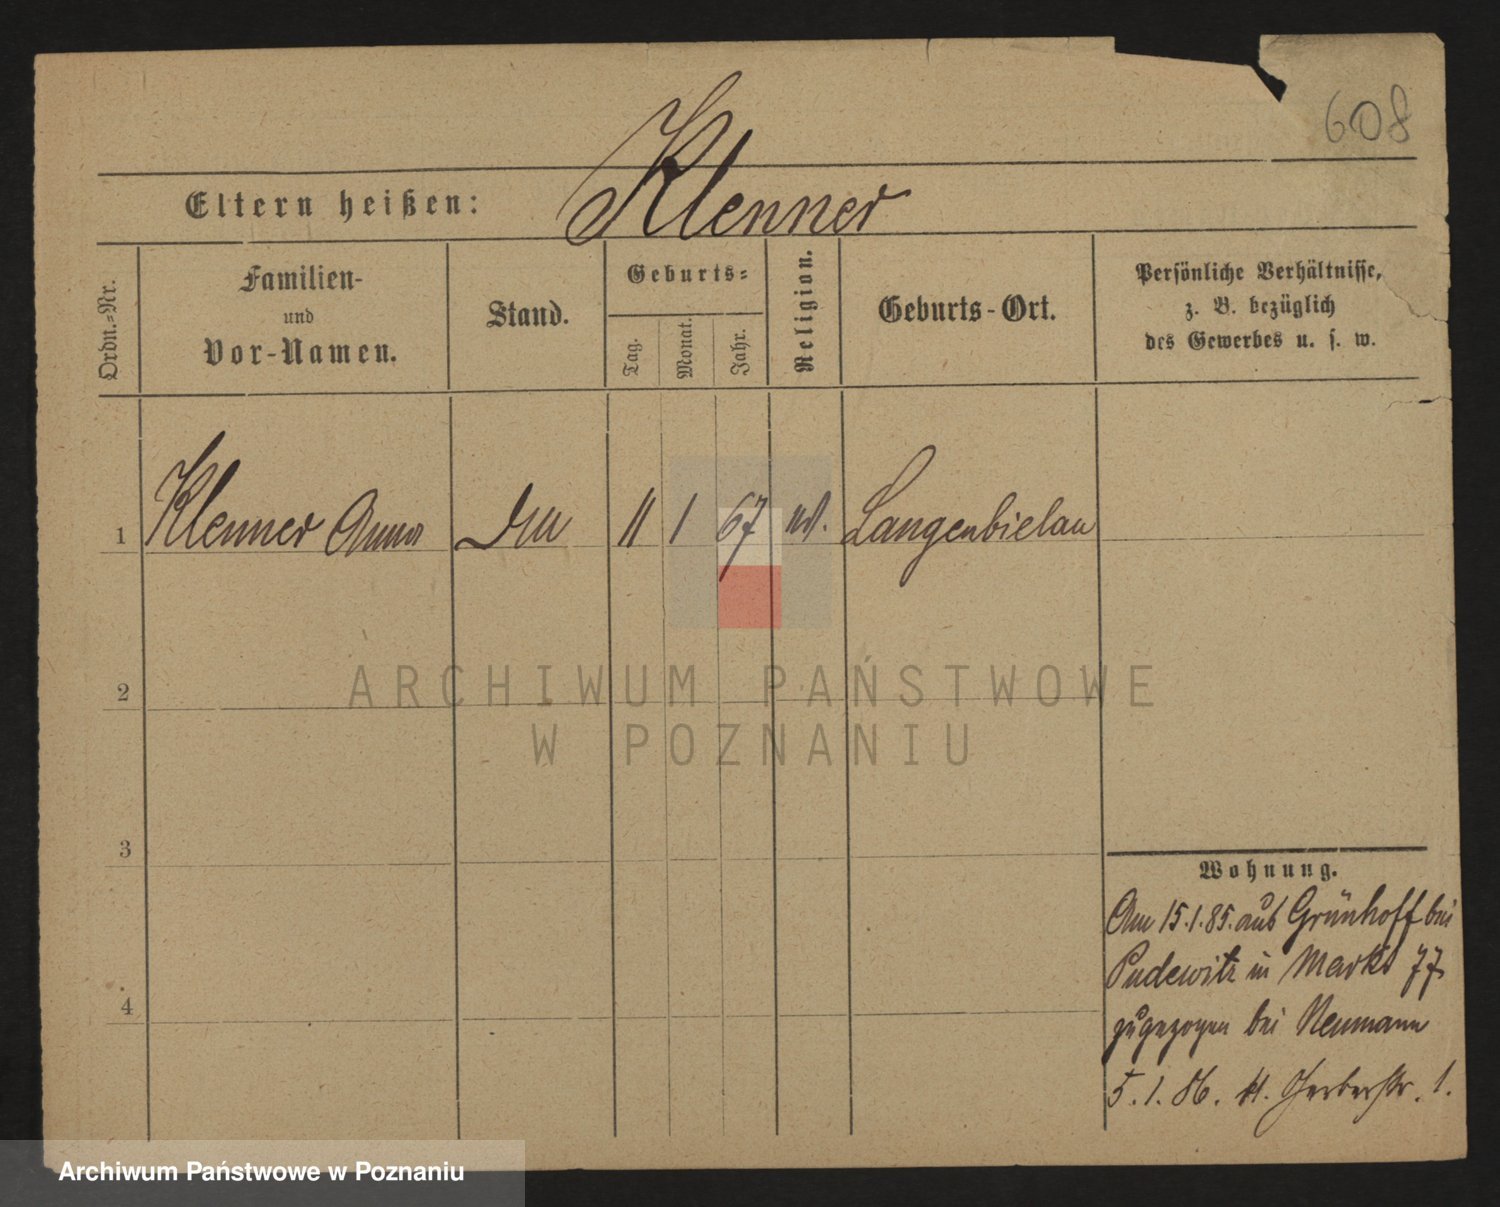 608
Klenner
Eltern heißen:
Ordn.=Nr.
Familien-
und
Vor-Namen.
Stand.
Geburts=
Tag.
Monat.
Jahr.
Religion.
Geburts-Ort.
Persönliche Verhältnisse,
z. B. bezüglich
des Gewerbes u. s. w.
1 Klenner Anna 11 1 67 Langenbielau
2
3
4
ARCHIWUM PAŃSTWOWE
W POZNANIU
Wohnung.
Am 15.1.85. aus Grünhoff bei
Pudewitz in Markt 77
zugezogen bei Neumann
5.1.86. kl. Gerberstr. 1.
Archiwum Państwowe w Poznaniu